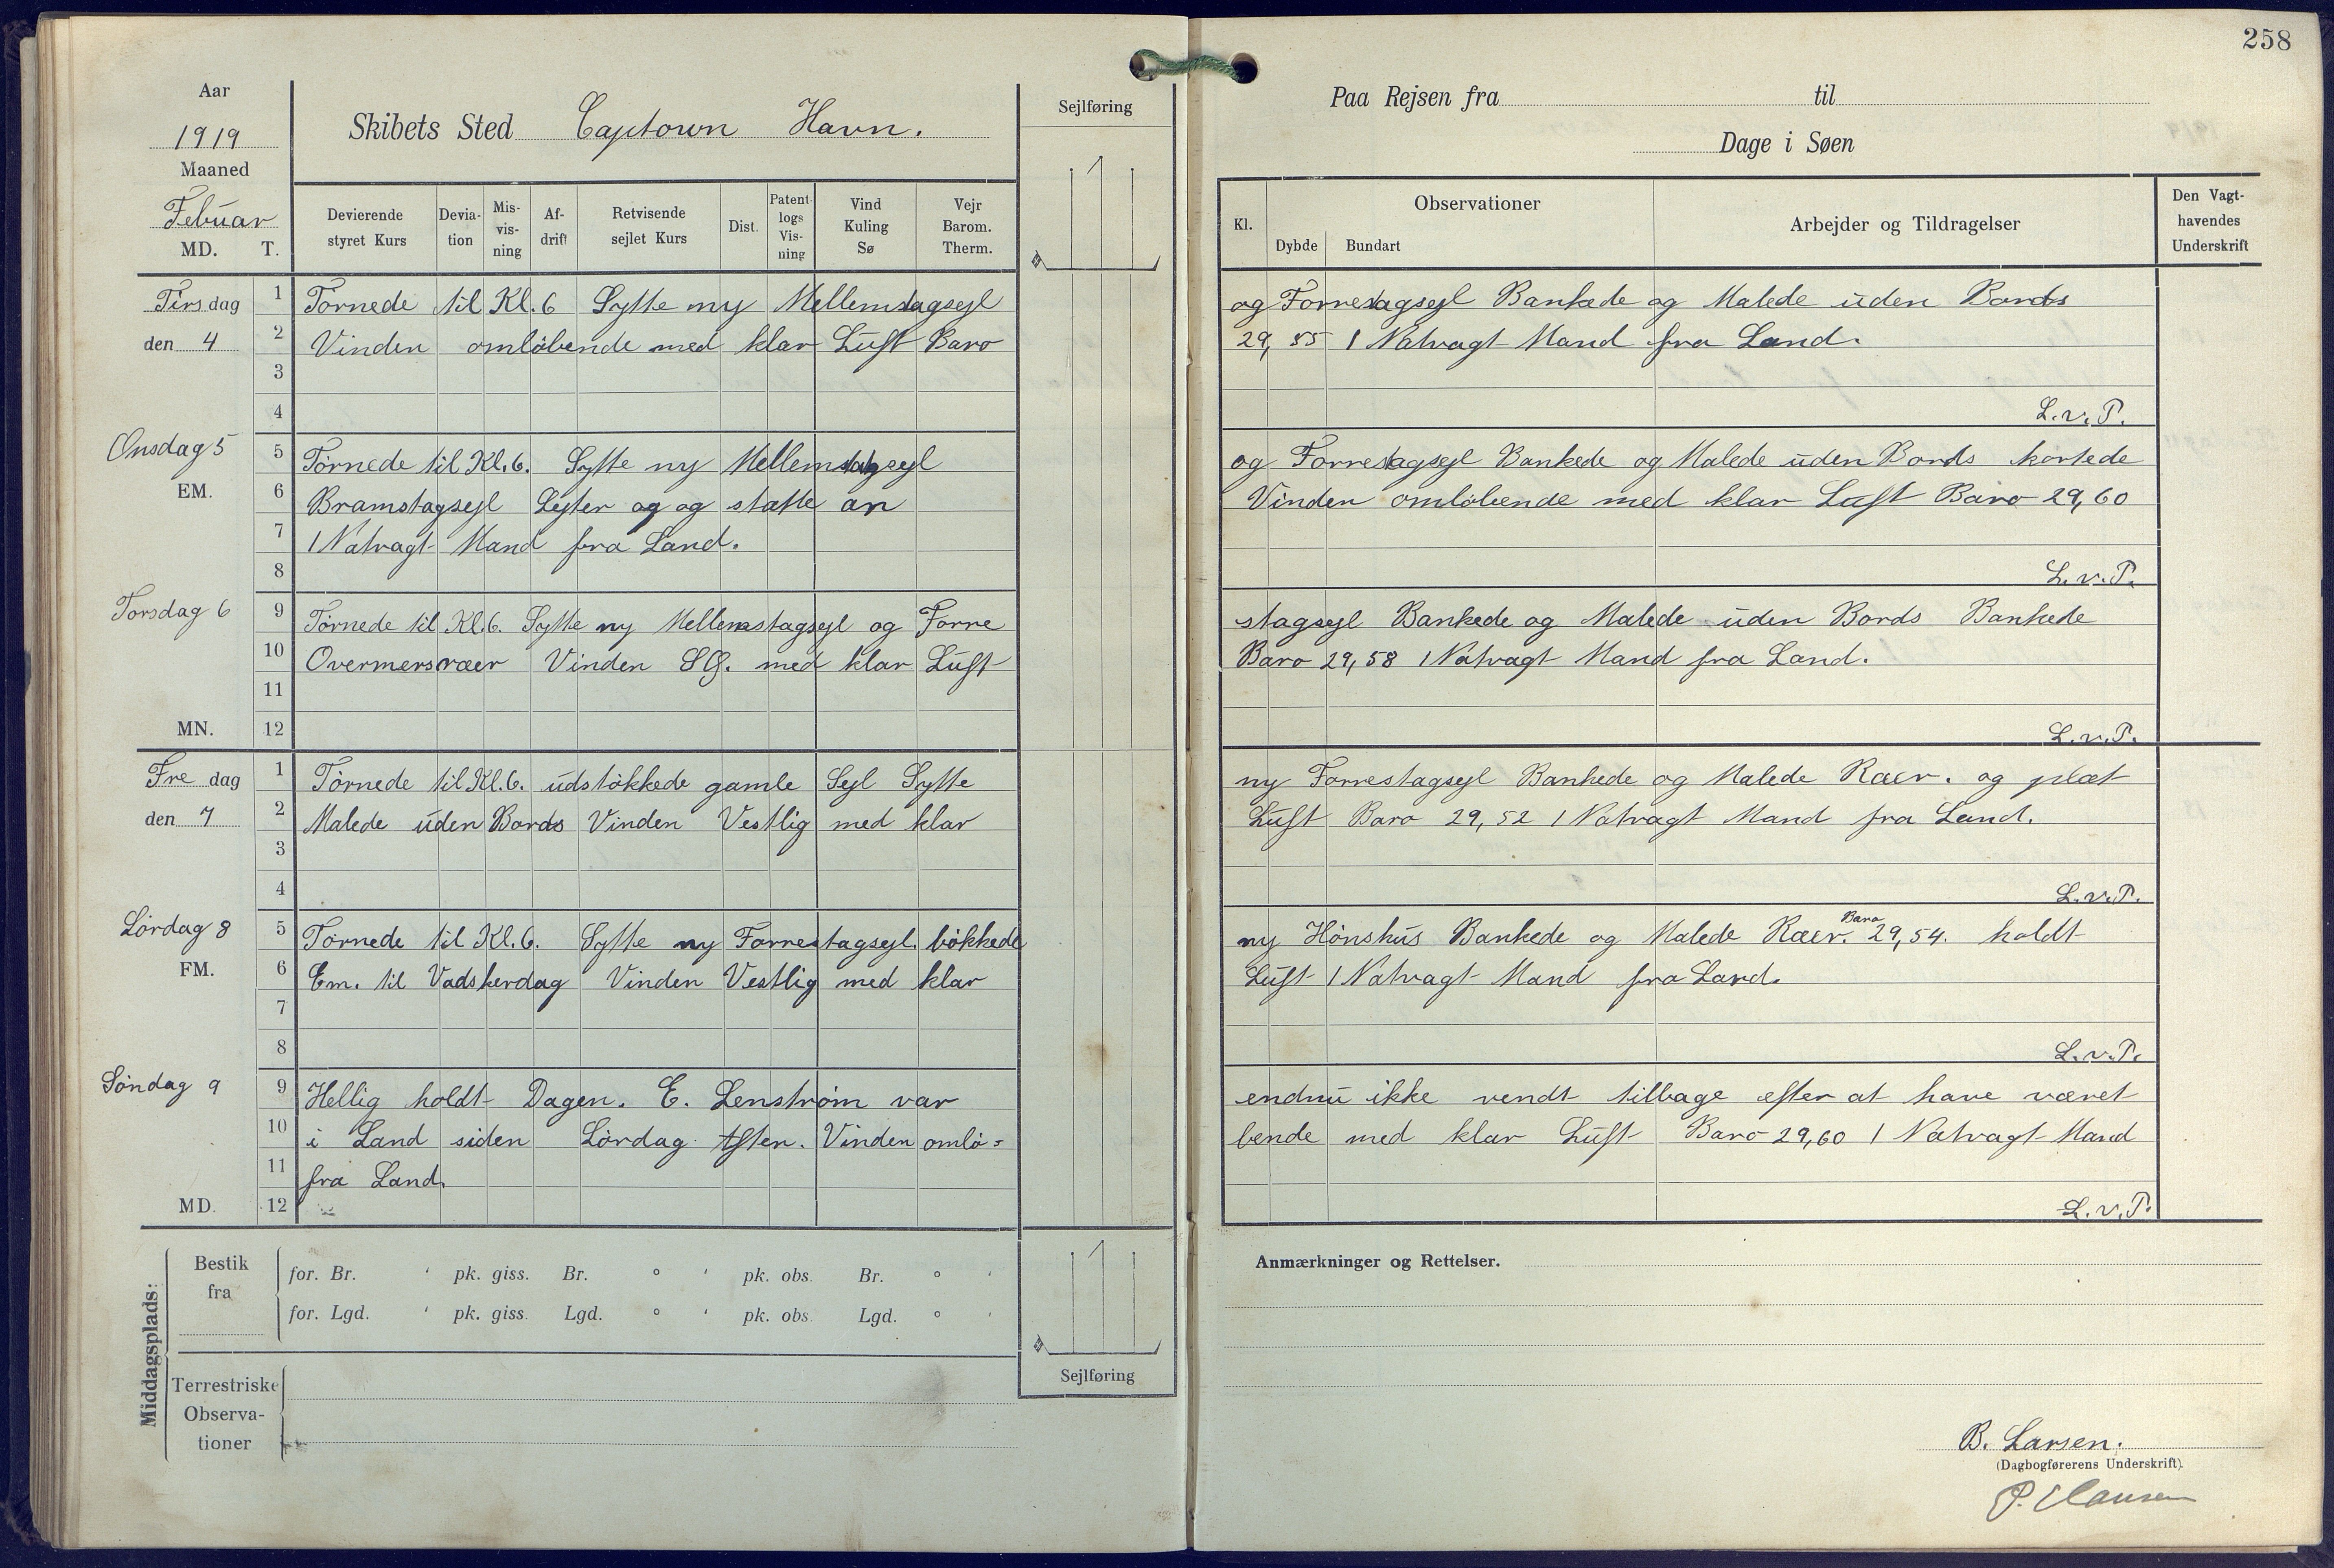 258
Aar
1919
Maaned
Febuar
MD. T.
Skibets Sted Captown Havn.
Sejlføring
Paa Rejsen fra til
Dage i Søen
Devierende styret Kurs
Devia-tion
Mis-vis-ning
Af-drift
Retvisende sejlet Kurs
Dist.
Patent logs Vis-ning
Vind Kuling Sø
Vejr Barom. Therm.
Kl.
Observationer
Dybde Bundart
Arbejder og Tildragelser
Den Vagt-havendes Underskrift
Tirsdag 1 Tornede til Kl. 6 Sytte ny Mellemstagsejl og Forrestagsejl Bankede og Malede uden Bords
den 4 2 Vinden omløbende med klar Luft Baro 29,55 1 Natvagt Mand fra Land.
3
4 L.v.P.
Onsdag 5
5 Tørnede til Kl. 6. Sytte ny Mellemstagsejl og Forrestagsejl Bankede og Malede uden Bords kortede
EM. 6 Bramstagsejl Lejter og og satte an Vinden omløbende med klar Luft Baro 29,60
7 1 Natvagt Mand fra Land.
8 L.v.P.
Torsdag 6
9 Tørnede til Kl. 6. Sytte ny Mellemstagsejl og Forre stagsejl Bankede og Malede uden Bords Bankede
10 Overmersræer Vinden SO. med klar Luft Baro 29,58 1 Natvagt Mand fra Land.
11
MN. 12 L.v.P.
Fredag 1 Tørnede til Kl. 6. udstøkkede gamle Sejl Sytte ny Forrestagsejl Bankede og Malede Ræer. og plæt
den 7 2 Malede uden Bords Vinden Vestlig med klar Luft Baro 29,52 1 Natvagt Mand fra Land.
3
4 L.v.P.
Lørdag 8
5 Tørnede til Kl. 6. Sytte ny Forrestagsejl. bøkkede ny Hønshus Bankede og Malede Ræer. Baro 29,54. holdt
FM. 6 Em. til Vadskerdag Vinden Vestlig med klar Luft 1 Natvagt Mand fra Land.
7
8 L.v.P.
Søndag 9
9 Hellig holdt Dagen. E. Lenstrøm var endnu ikke vendt tilbage efter at have været
10 i Land siden Lørdag Aften. Vinden omlø= bende med klar Luft Baro 29,60 1 Natvagt Mand
11 fra Land.
MD. 12 L.v.P.
Middagsplads:
Bestik fra
for. Br. ' pk. giss. Br. ° ' pk. obs. Br. ° '
for. Lgd. ' pk. giss. Lgd. ° ' pk. obs. Lgd. ° '
Terrestriske Observa-tioner
Sejlføring
Anmærkninger og Rettelser.
B. Larsen.
(Dagbogførerens Underskrift).
P. Clausen